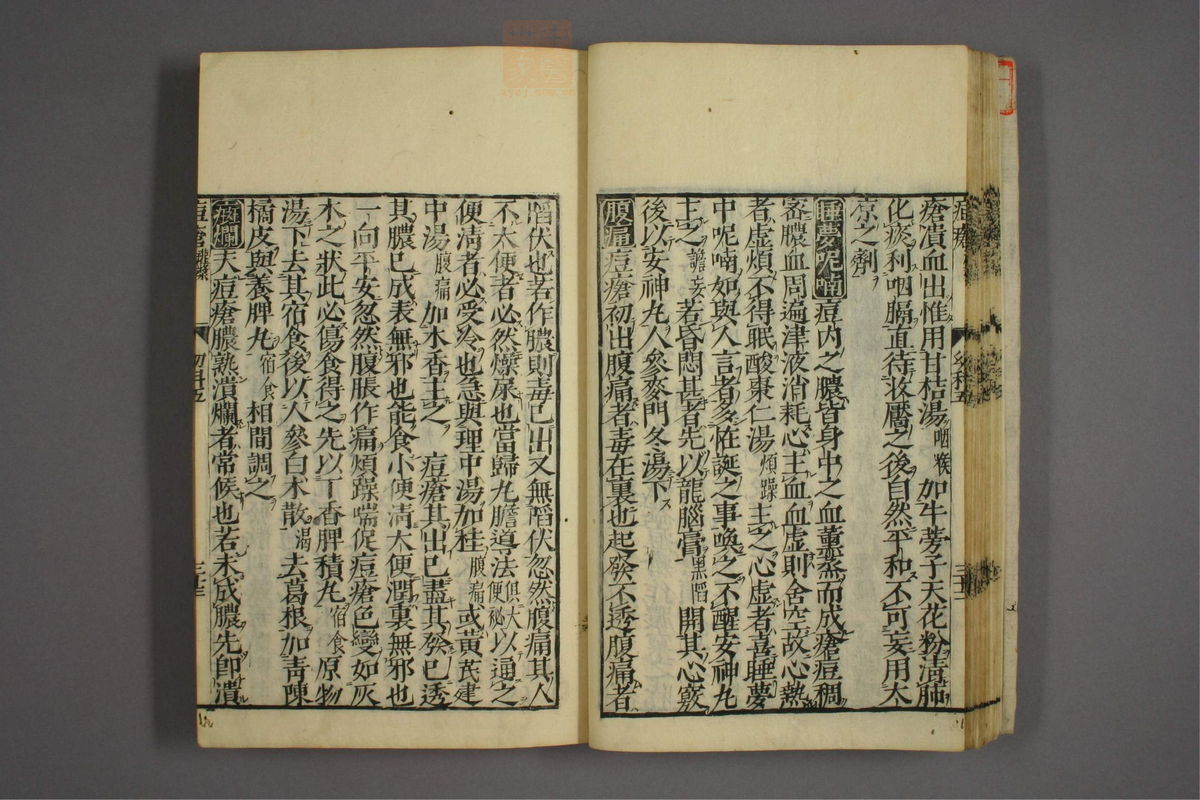 瘡潰血出惟用甘桔湯咽喉如牛蒡子天花粉清肺
化痰利咽膈直待收靨之後自然平和不可妄用大
凉之劑
睡夢呢喃痘内之膿皆身中之血薰蒸而成瘡痘稠
密膿血周遍津液消耗心主血血虚則舍空故心熱
者虚煩不得眠酸棗仁湯煩躁主之心虚者喜睡夢
中呢喃如與人言者多怪誕之事喚之不醒安神丸
主之譫妄若昏悶甚者先以龍腦膏黑陷開其心竅
後以安神丸人參麥門冬湯下
腹痛痘瘡初出腹痛者毒在裏也起發不透腹痛者
陷伏也若作膿則毒已出又無陷伏忽然腹痛其人
不大便者必然燥屎也當歸丸膽導法俱大便秘以通之
便清者必受冷也急與理中湯加桂腹痛或黃芪建
中湯腹痛加木香主之 痘瘡其出已盡其發已透
其膿已成表無邪也能食小便清大便潤裏無邪也
一向平安忽然腹脹作痛煩躁喘促痘瘡色變如灰
木之狀此必傷食得之先以丁香脾積丸宿食原物
湯下去其宿食後以人參白朮散渴去葛根加青陳
橘皮與養脾丸宿食相間調之
癍爛夫痘瘡膿熟潰爛者常候也若未成膿先即潰
痘瘡 幼科五